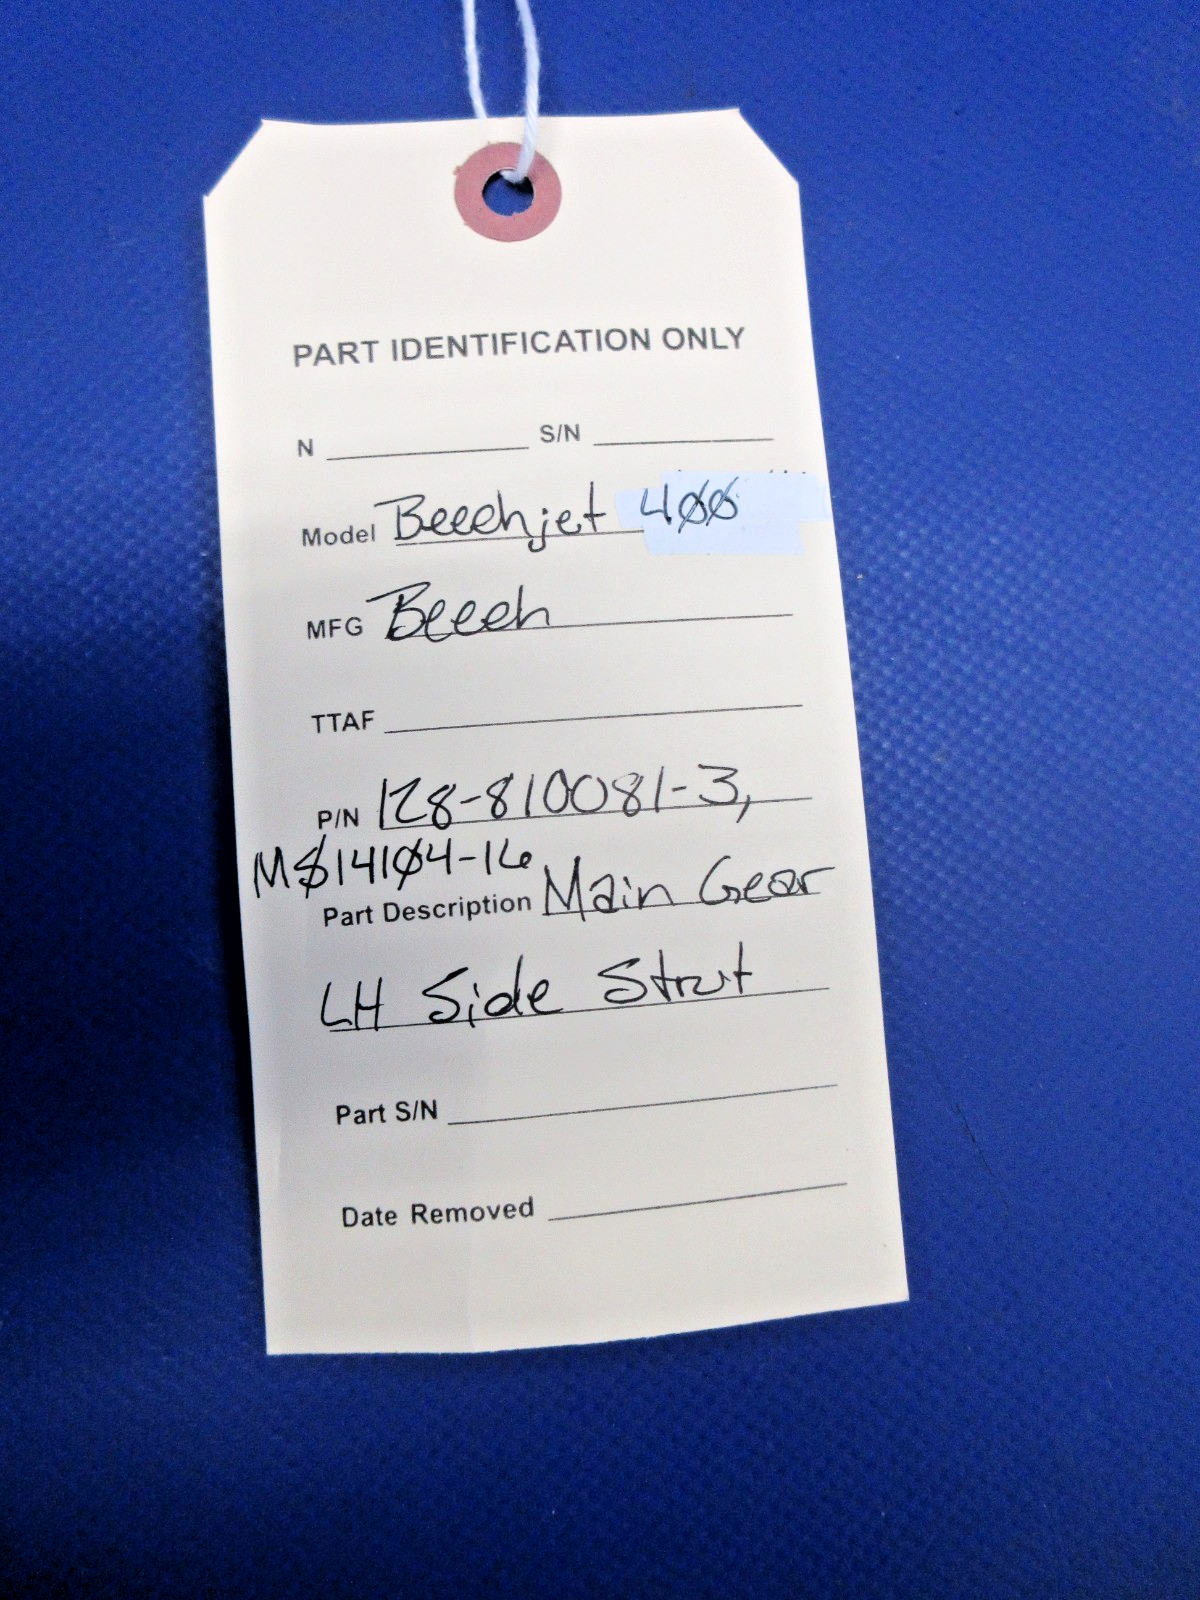 PART IDENTIFICATION ONLY
N S/N
Model Beechjet 400
MFG Beech
TTAF
P/N 128-810081-3,
MS14104-16
Part Description Main Gear
LH Side Strut
Part S/N
Date Removed